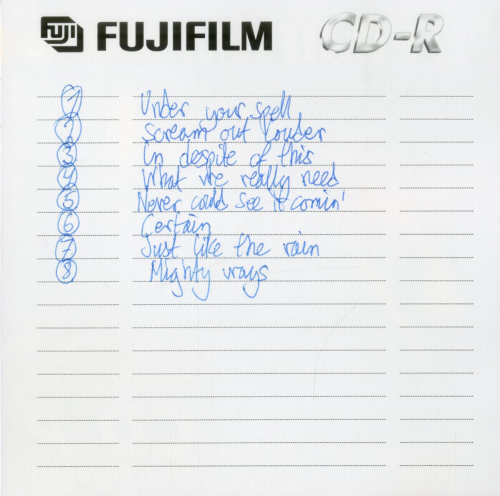 FUJI FUJIFILM CD-R
1 Under your spell
2 Scream out louder
3 In despite of this
4 What we really need
5 Never could see it comin'
6 Certain
7 Just like the rain
8 Mighty ways